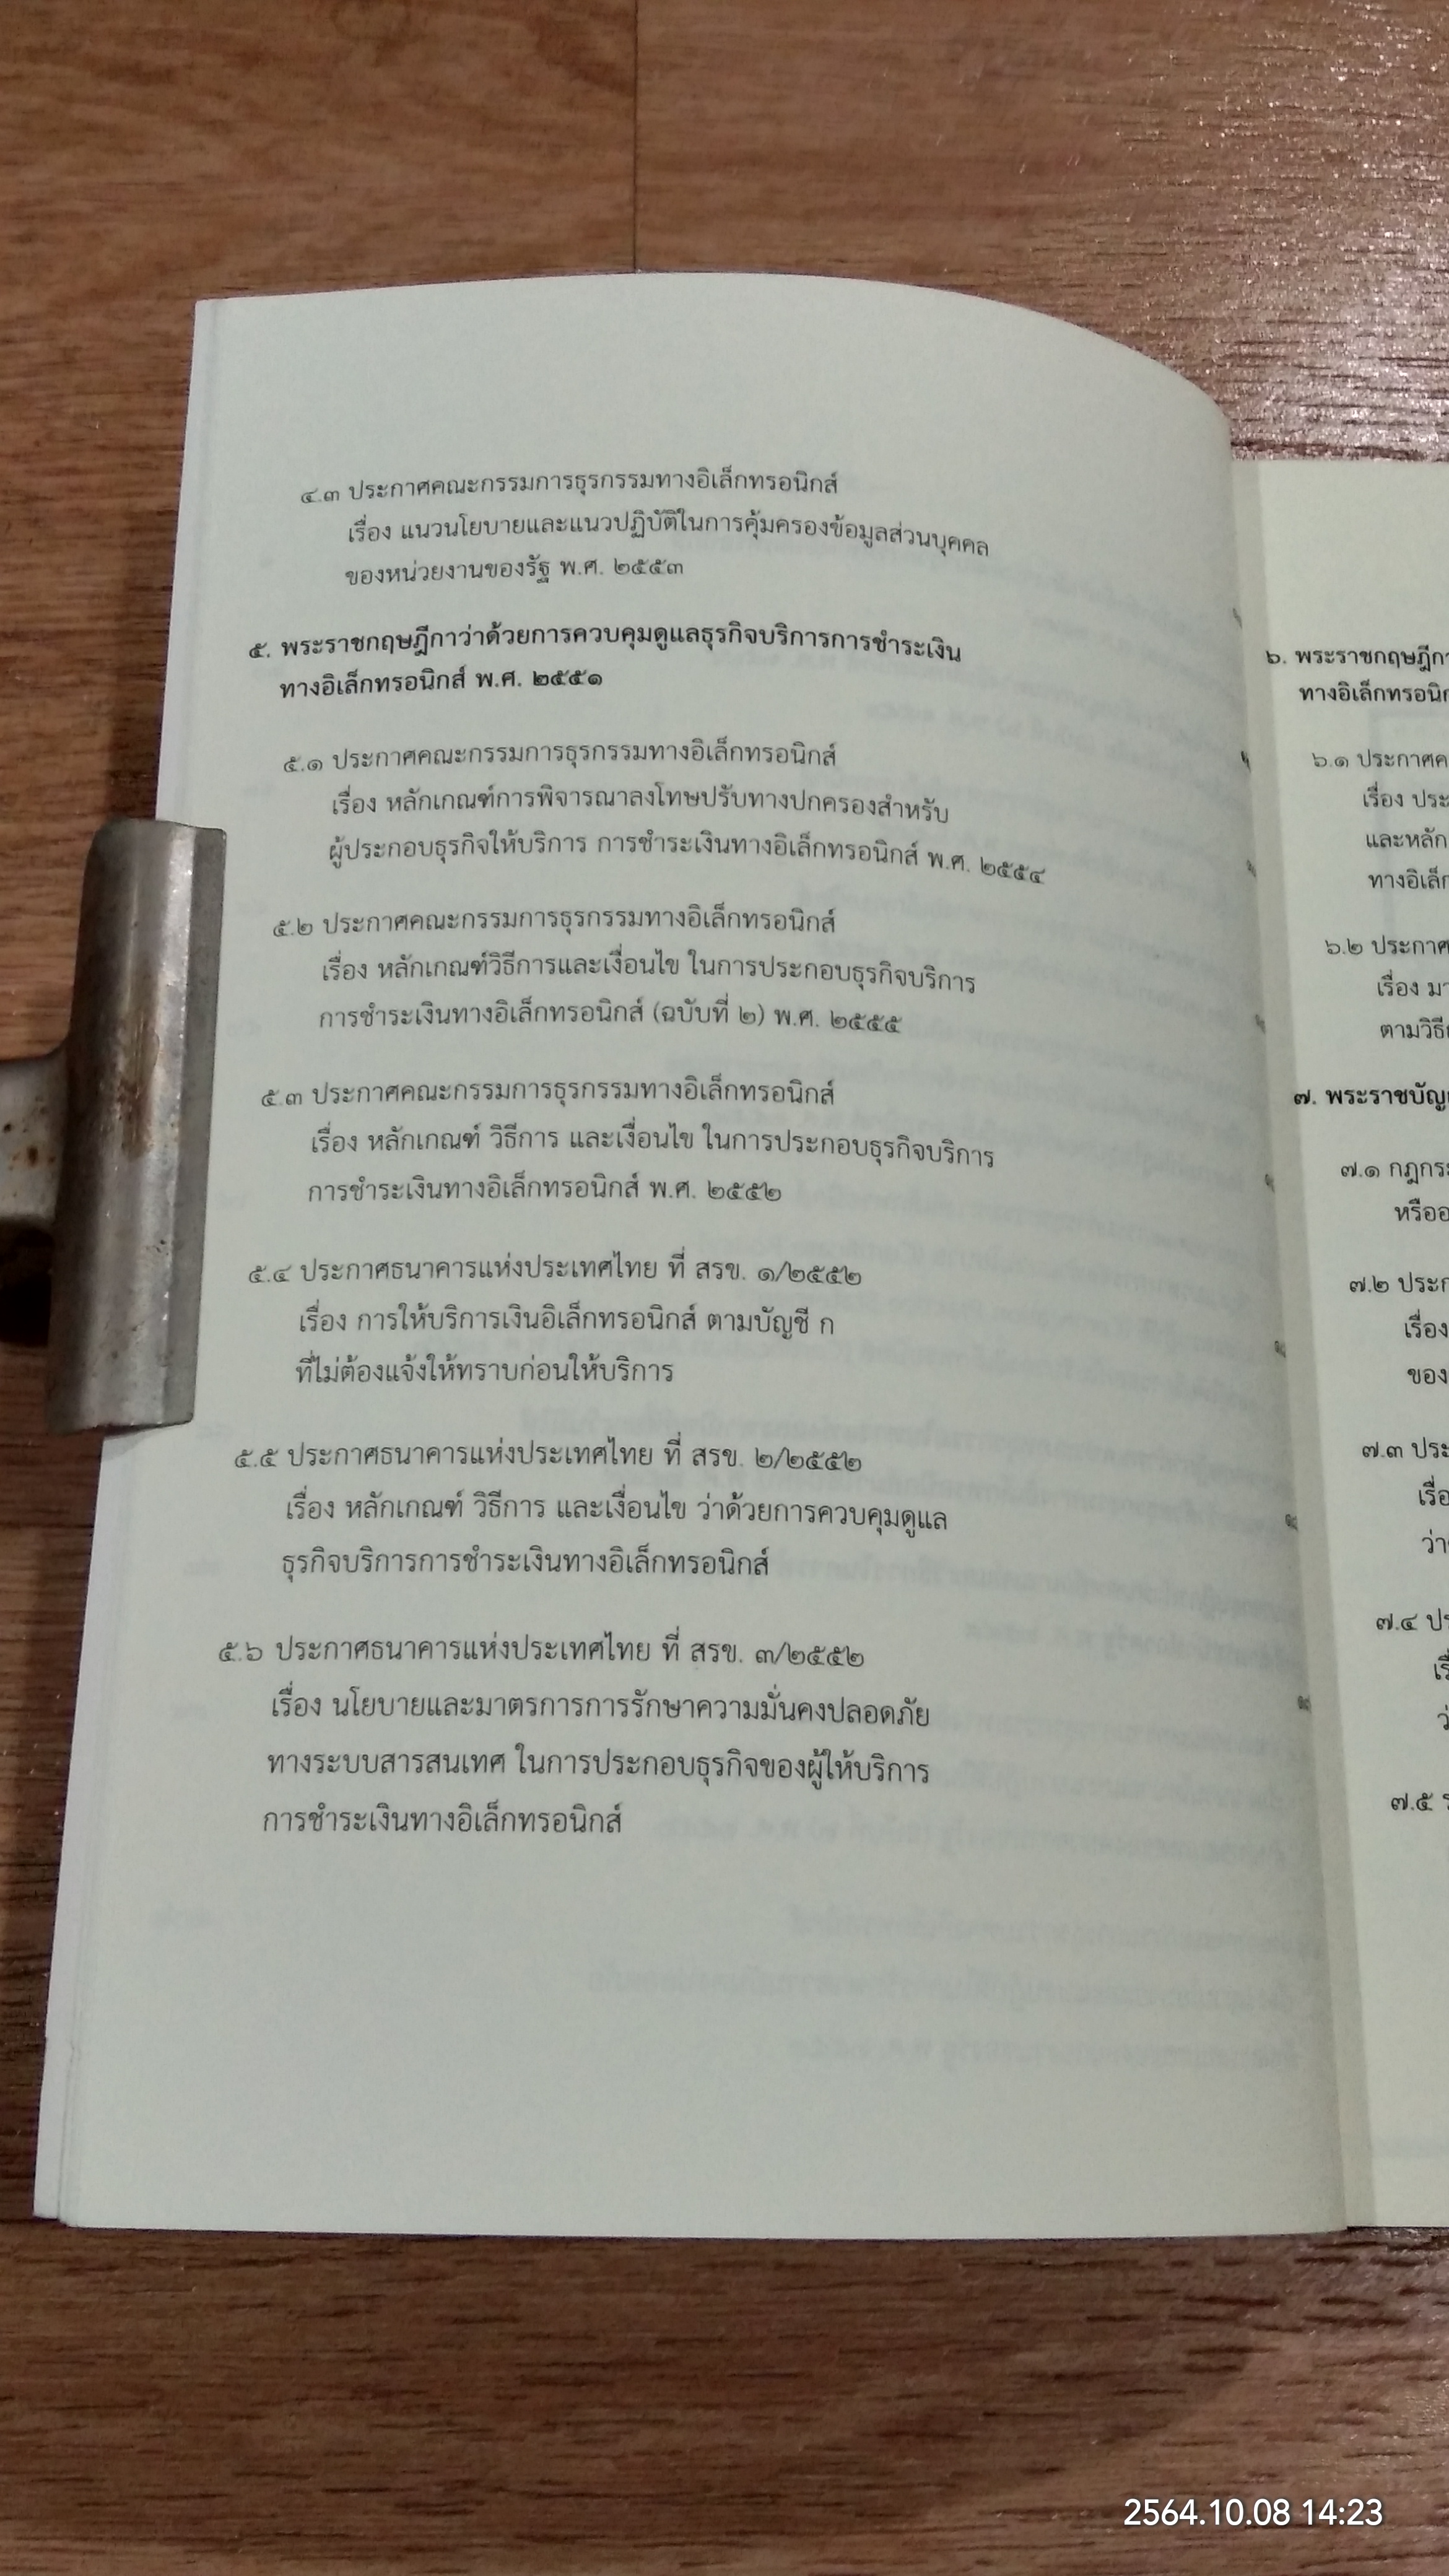 ๔.๓ ประกาศคณะกรรมการธุรกรรมทางอิเล็กทรอนิกส์
เรื่อง แนวนโยบายและแนวปฏิบัติในการคุ้มครองข้อมูลส่วนบุคคล
ของหน่วยงานของรัฐ พ.ศ. ๒๕๕๓
๕. พระราชกฤษฎีกาว่าด้วยการควบคุมดูแลธุรกิจบริการการชำระเงิน
ทางอิเล็กทรอนิกส์ พ.ศ. ๒๕๕๑
๕.๑ ประกาศคณะกรรมการธุรกรรมทางอิเล็กทรอนิกส์
เรื่อง หลักเกณฑ์การพิจารณาลงโทษปรับทางปกครองสำหรับ
ผู้ประกอบธุรกิจให้บริการ การชำระเงินทางอิเล็กทรอนิกส์ พ.ศ. ๒๕๕๔
๕.๒ ประกาศคณะกรรมการธุรกรรมทางอิเล็กทรอนิกส์
เรื่อง หลักเกณฑ์วิธีการและเงื่อนไข ในการประกอบธุรกิจบริการ
การชำระเงินทางอิเล็กทรอนิกส์ (ฉบับที่ ๒) พ.ศ. ๒๕๕๕
๕.๓ ประกาศคณะกรรมการธุรกรรมทางอิเล็กทรอนิกส์
เรื่อง หลักเกณฑ์ วิธีการ และเงื่อนไข ในการประกอบธุรกิจบริการ
การชำระเงินทางอิเล็กทรอนิกส์ พ.ศ. ๒๕๕๒
๕.๔ ประกาศธนาคารแห่งประเทศไทย ที่ สรข. ๑/๒๕๕๒
เรื่อง การให้บริการเงินอิเล็กทรอนิกส์ ตามบัญชี ก
ที่ไม่ต้องแจ้งให้ทราบก่อนให้บริการ
๕.๕ ประกาศธนาคารแห่งประเทศไทย ที่ สรข. ๒/๒๕๕๒
เรื่อง หลักเกณฑ์ วิธีการ และเงื่อนไข ว่าด้วยการควบคุมดูแล
ธุรกิจบริการการชำระเงินทางอิเล็กทรอนิกส์
๕.๖ ประกาศธนาคารแห่งประเทศไทย ที่ สรข. ๓/๒๕๕๒
เรื่อง นโยบายและมาตรการการรักษาความมั่นคงปลอดภัย
ทางระบบสารสนเทศ ในการประกอบธุรกิจของผู้ให้บริการ
การชำระเงินทางอิเล็กทรอนิกส์
๖. พระราชกฤษฎีกา
ทางอิเล็กทรอนิก
๖.๑ ประกาศค
เรื่อง ประ
และหลัก
ทางอิเล็ก
๖.๒ ประกาศ
เรื่อง มา
ตามวิธี
๗. พระราชบัญ
๗.๑ กฎกระ
หรืออ
๗.๒ ประก
เรื่อง
ของ
๗.๓ ประ
เรื่อ
ว่า
๗.๔ ปร
เรื่
ว
๗.๕
2564.10.08 14:23